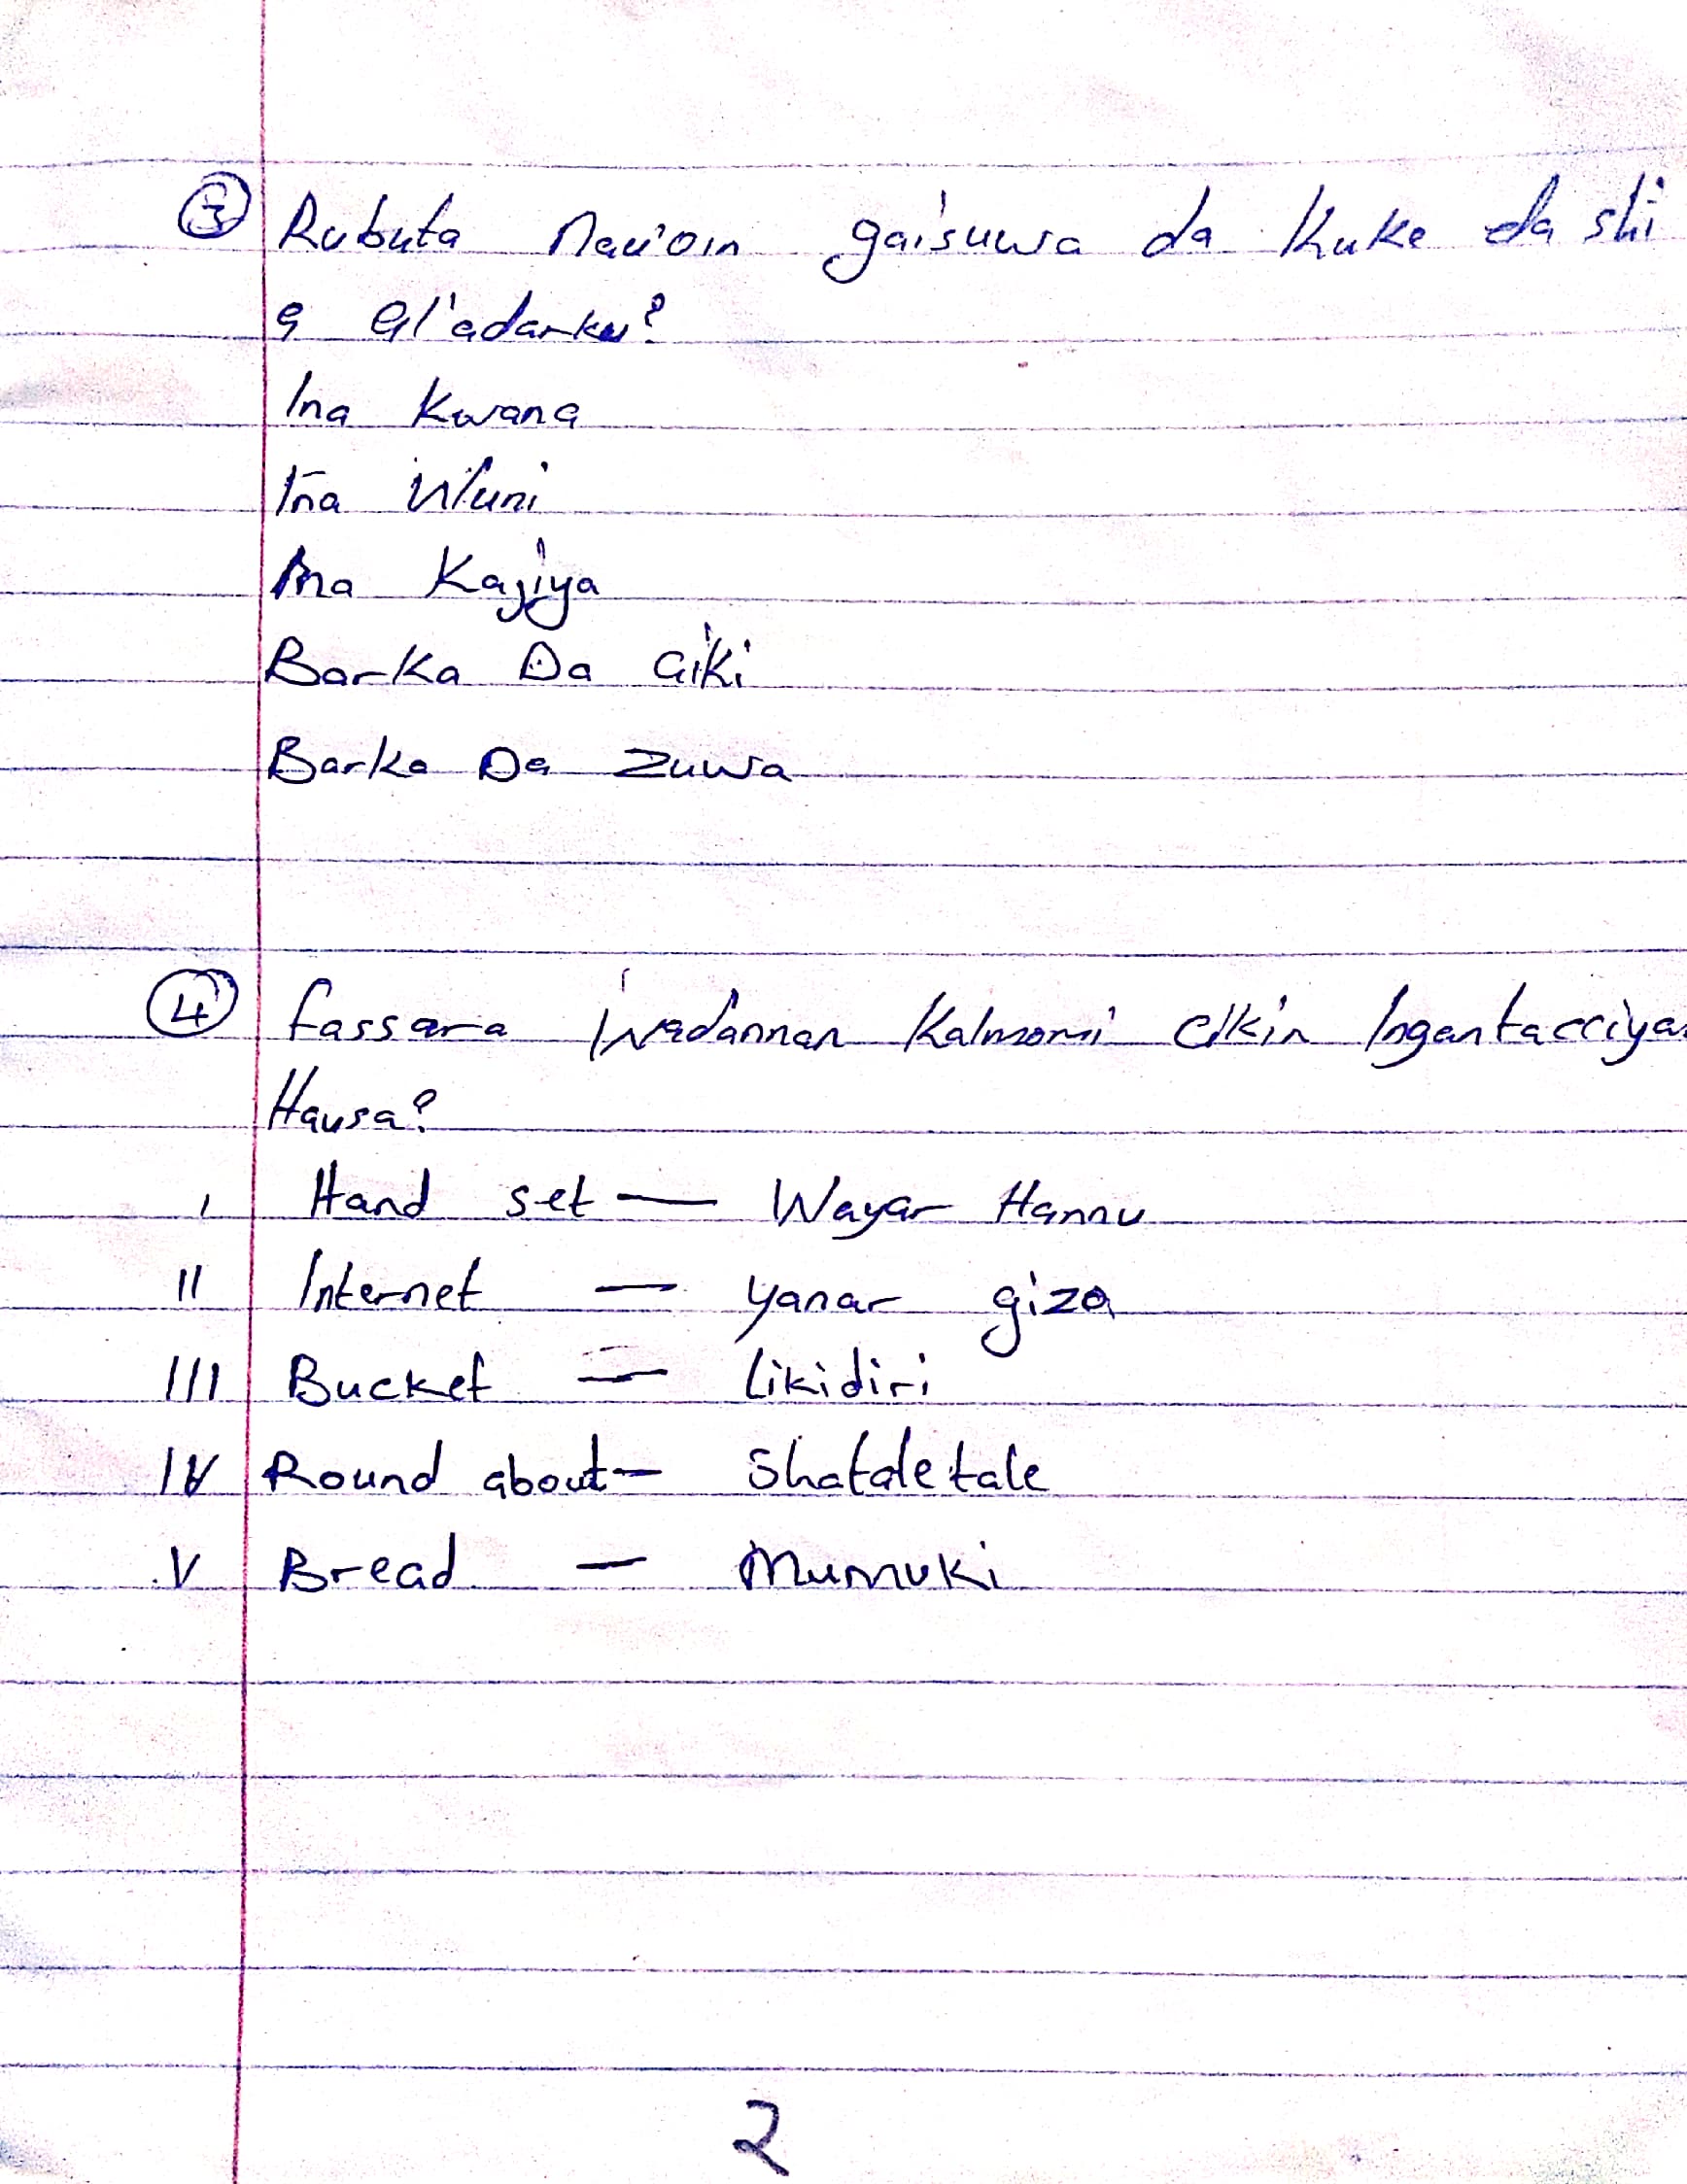 3 Rubuta Nau'oin gaisuwa da Kuke da shi
a al'adarku?
Ina Kwana
Ina Wuni
Ina Kajiya
Barka Da Aiki
Barka Da Zuwa
4 fassara Wadannan Kalmomi cikin Ingantacciyar
Hausa?
I Hand set — Wayar Hannu
II Internet — yanar giza
III Bucket — Likidiri
IV Round about — Shataletale
V Bread — Mumuki
2